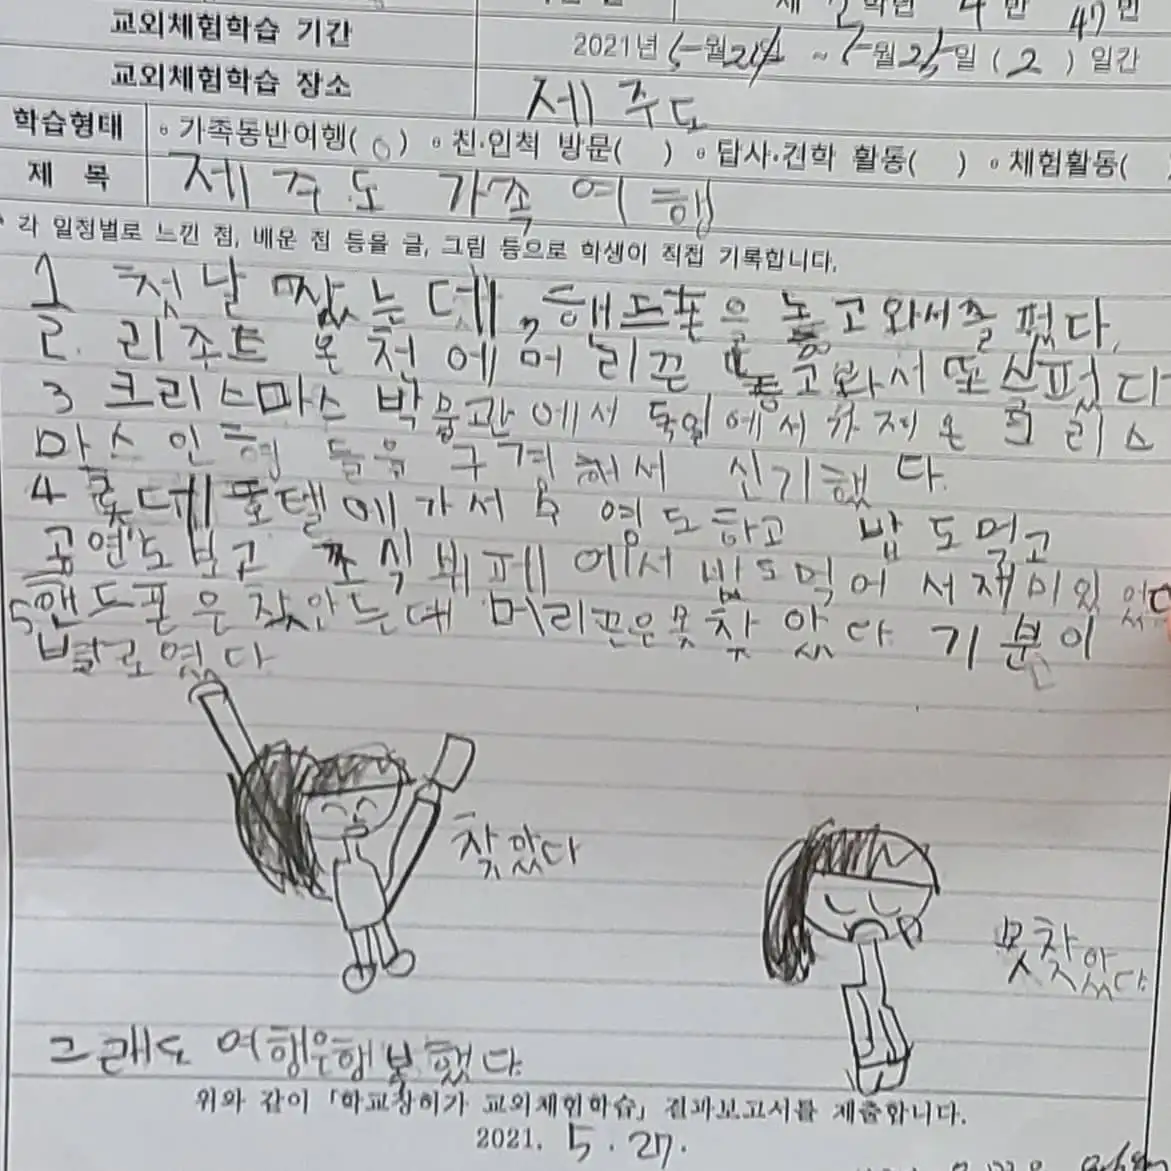 제 2 학년 4 반 47 번
교외체험학습 기간 2021년 5월 24일 ~ 5월 25일 ( 2 ) 일간
교외체험학습 장소 제주도
학습형태 ∘ 가족동반여행( O ) ∘ 친·인척 방문( ) ∘ 답사·견학 활동( ) ∘ 체험활동(
제 목 제주도 가족 여행
각 일정별로 느낀 점, 배운 점 등을 글, 그림 등으로 학생이 직접 기록합니다.
1 첫날 핸드폰을 놓고와서
2. 리조트 온천에 머리끈 놓고와서 또 슬펐다
3 크리스마스 박물관에서 독일에서 가져온 크리스
마스 인형 들을 구경해서 신기했다.
4 롯데호텔에가서 수영도하고 밥도먹고
공연도보고 조식뷔페에서 밥도먹어서재미있었다
5핸드폰은 찾았는데 머리끈은못찾았다 기분이
별로였다
찾았다
못찾았다
그래도 여행은행복했다
위와 같이 「학교장허가 교외체험학습」 결과보고서를 제출합니다.
2021. 5. 27.